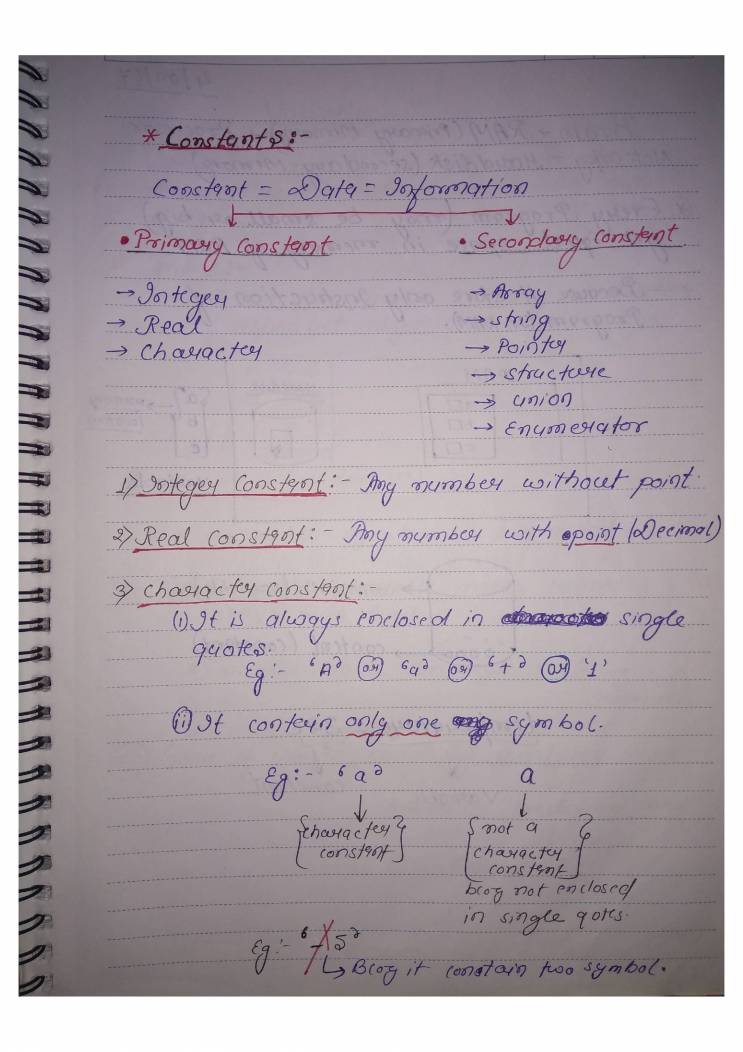 * Constants:-
Constant = Data = Information
• Primary Constant • Secondary Constant
→ Integer → Array
→ Real → string
→ Character → Pointer
→ structure
→ union
→ Enumerator
1) Integer Constant:- Any number without point.
2) Real constant:- Any number with point (Decimal)
3) character constant:-
(i) It is always enclosed in single
quotes.
Eg:- 'A' (or) 'a' (or) '+' (or) '1'
(ii) It contain only one symbol.
Eg:- 'a' a
↓ ↓
{character {not a }
constant} character
constant
bcoz not enclosed
in single qotes.
Eg:- '-5'
↳ Bcoz it conatain two symbol.